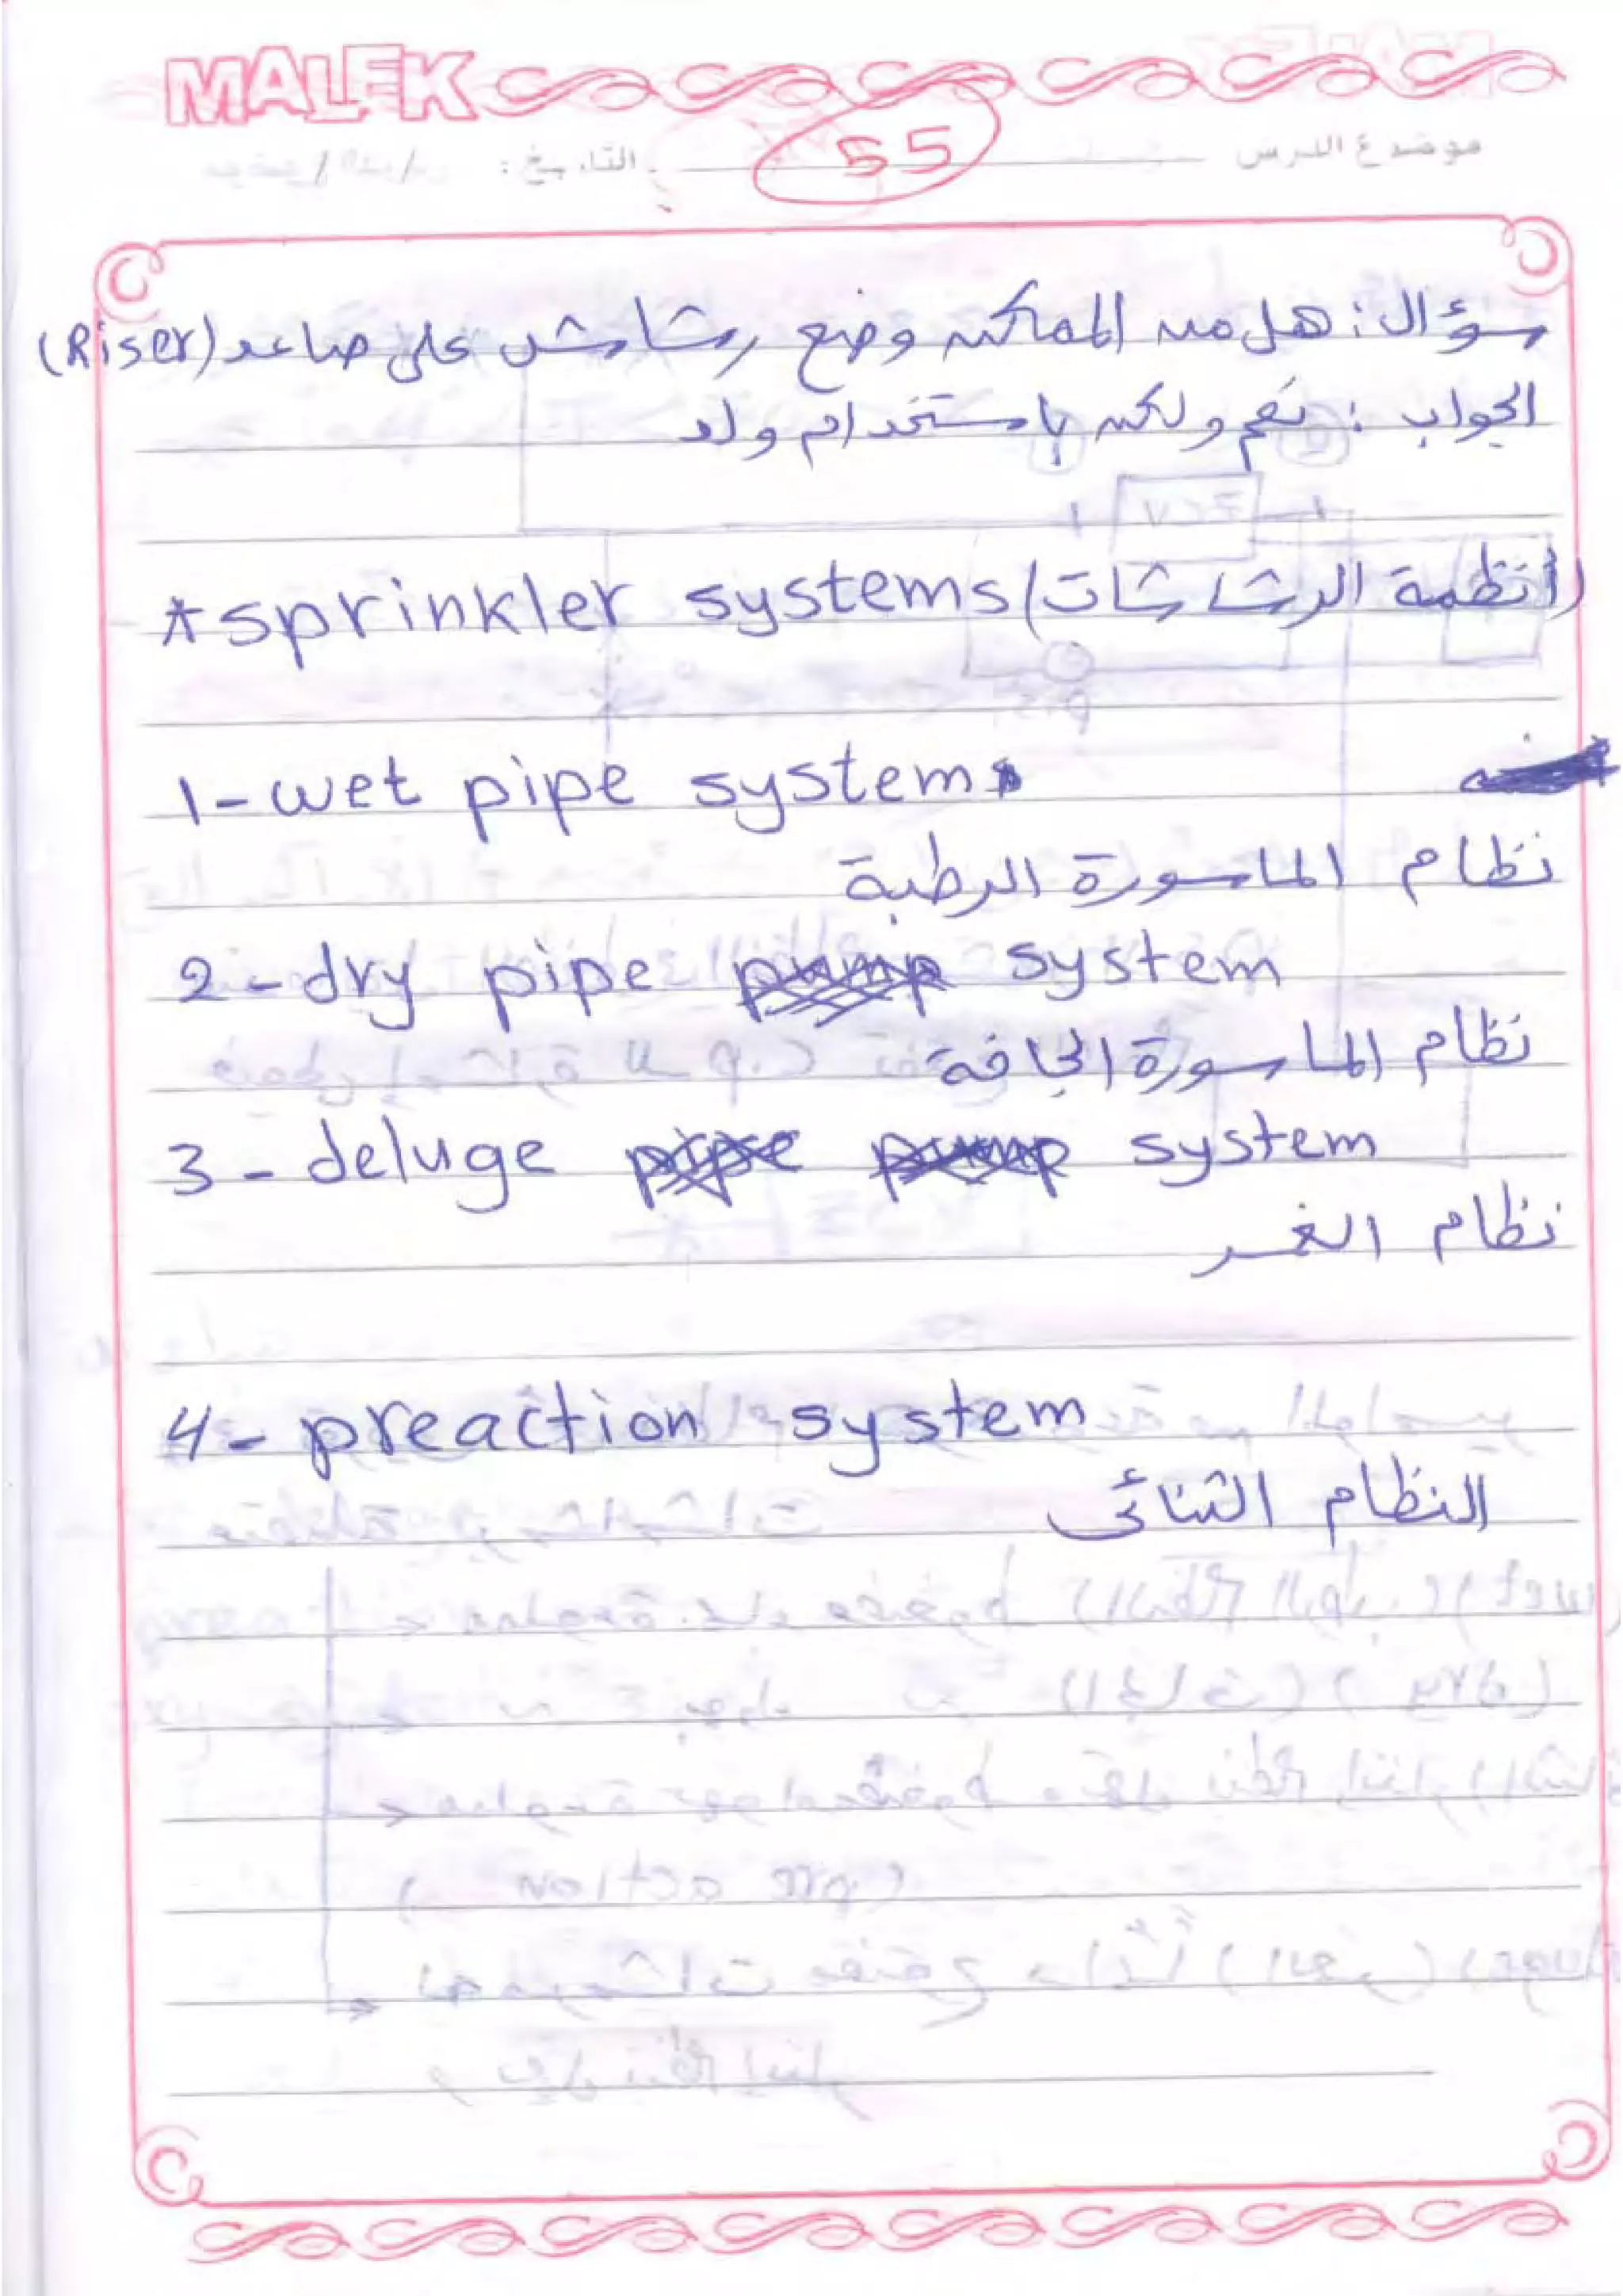 MALEK
موضوع الدرس
55
التاريخ : / /
سؤال : هل من الممكن وضع رشاش على صاعد (Riser)
الجواب : نعم ولكن باستخدام ولد
* sprinkler systems (أنظمة الرشاشات)
1 - wet pipe system
نظام الماسورة الرطبة
2 - dry pipe pump system
نظام الماسورة الجافة
3 - deluge pipe pump system
نظام الغمر
4 - preaction system
النظام الثنائى